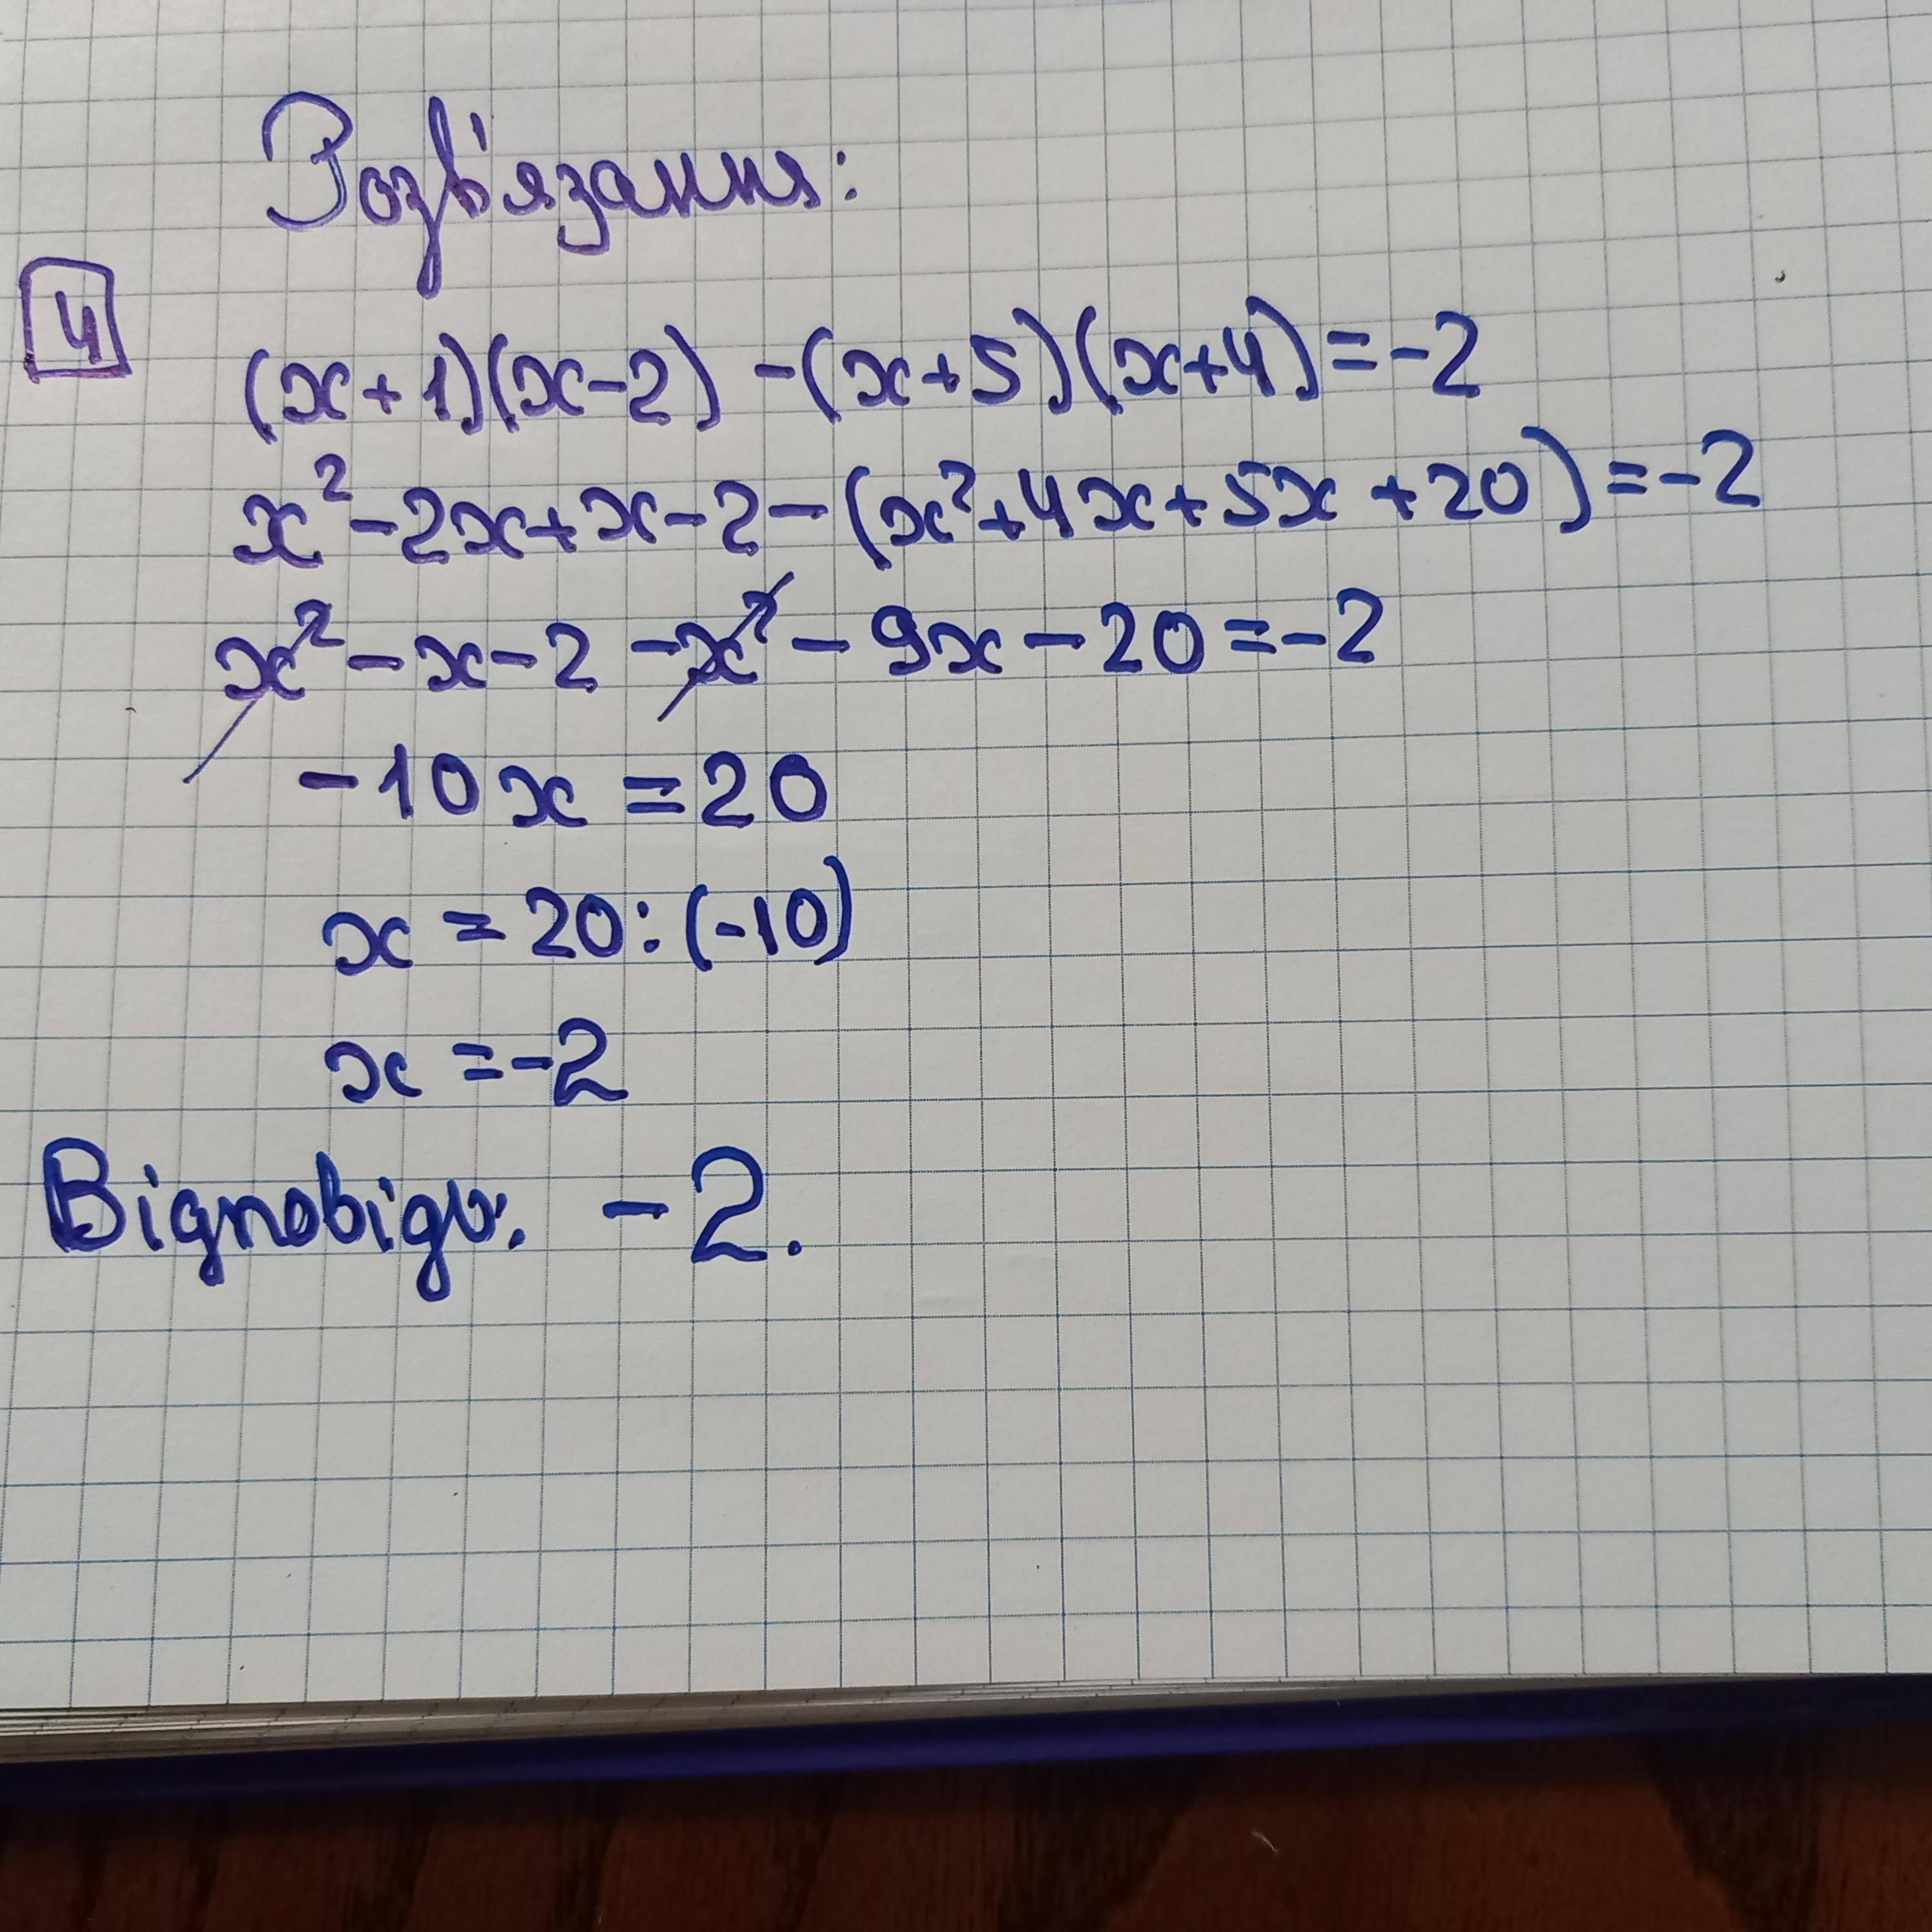 Розв'язання:
4
(x+1)(x-2) -(x+5)(x+4)=-2
x²-2x+x-2-(x²+4x+5x+20)=-2
x²-x-2-x²-9x-20=-2
-10x=20
x=20:(-10)
x=-2
Відповідь: -2.